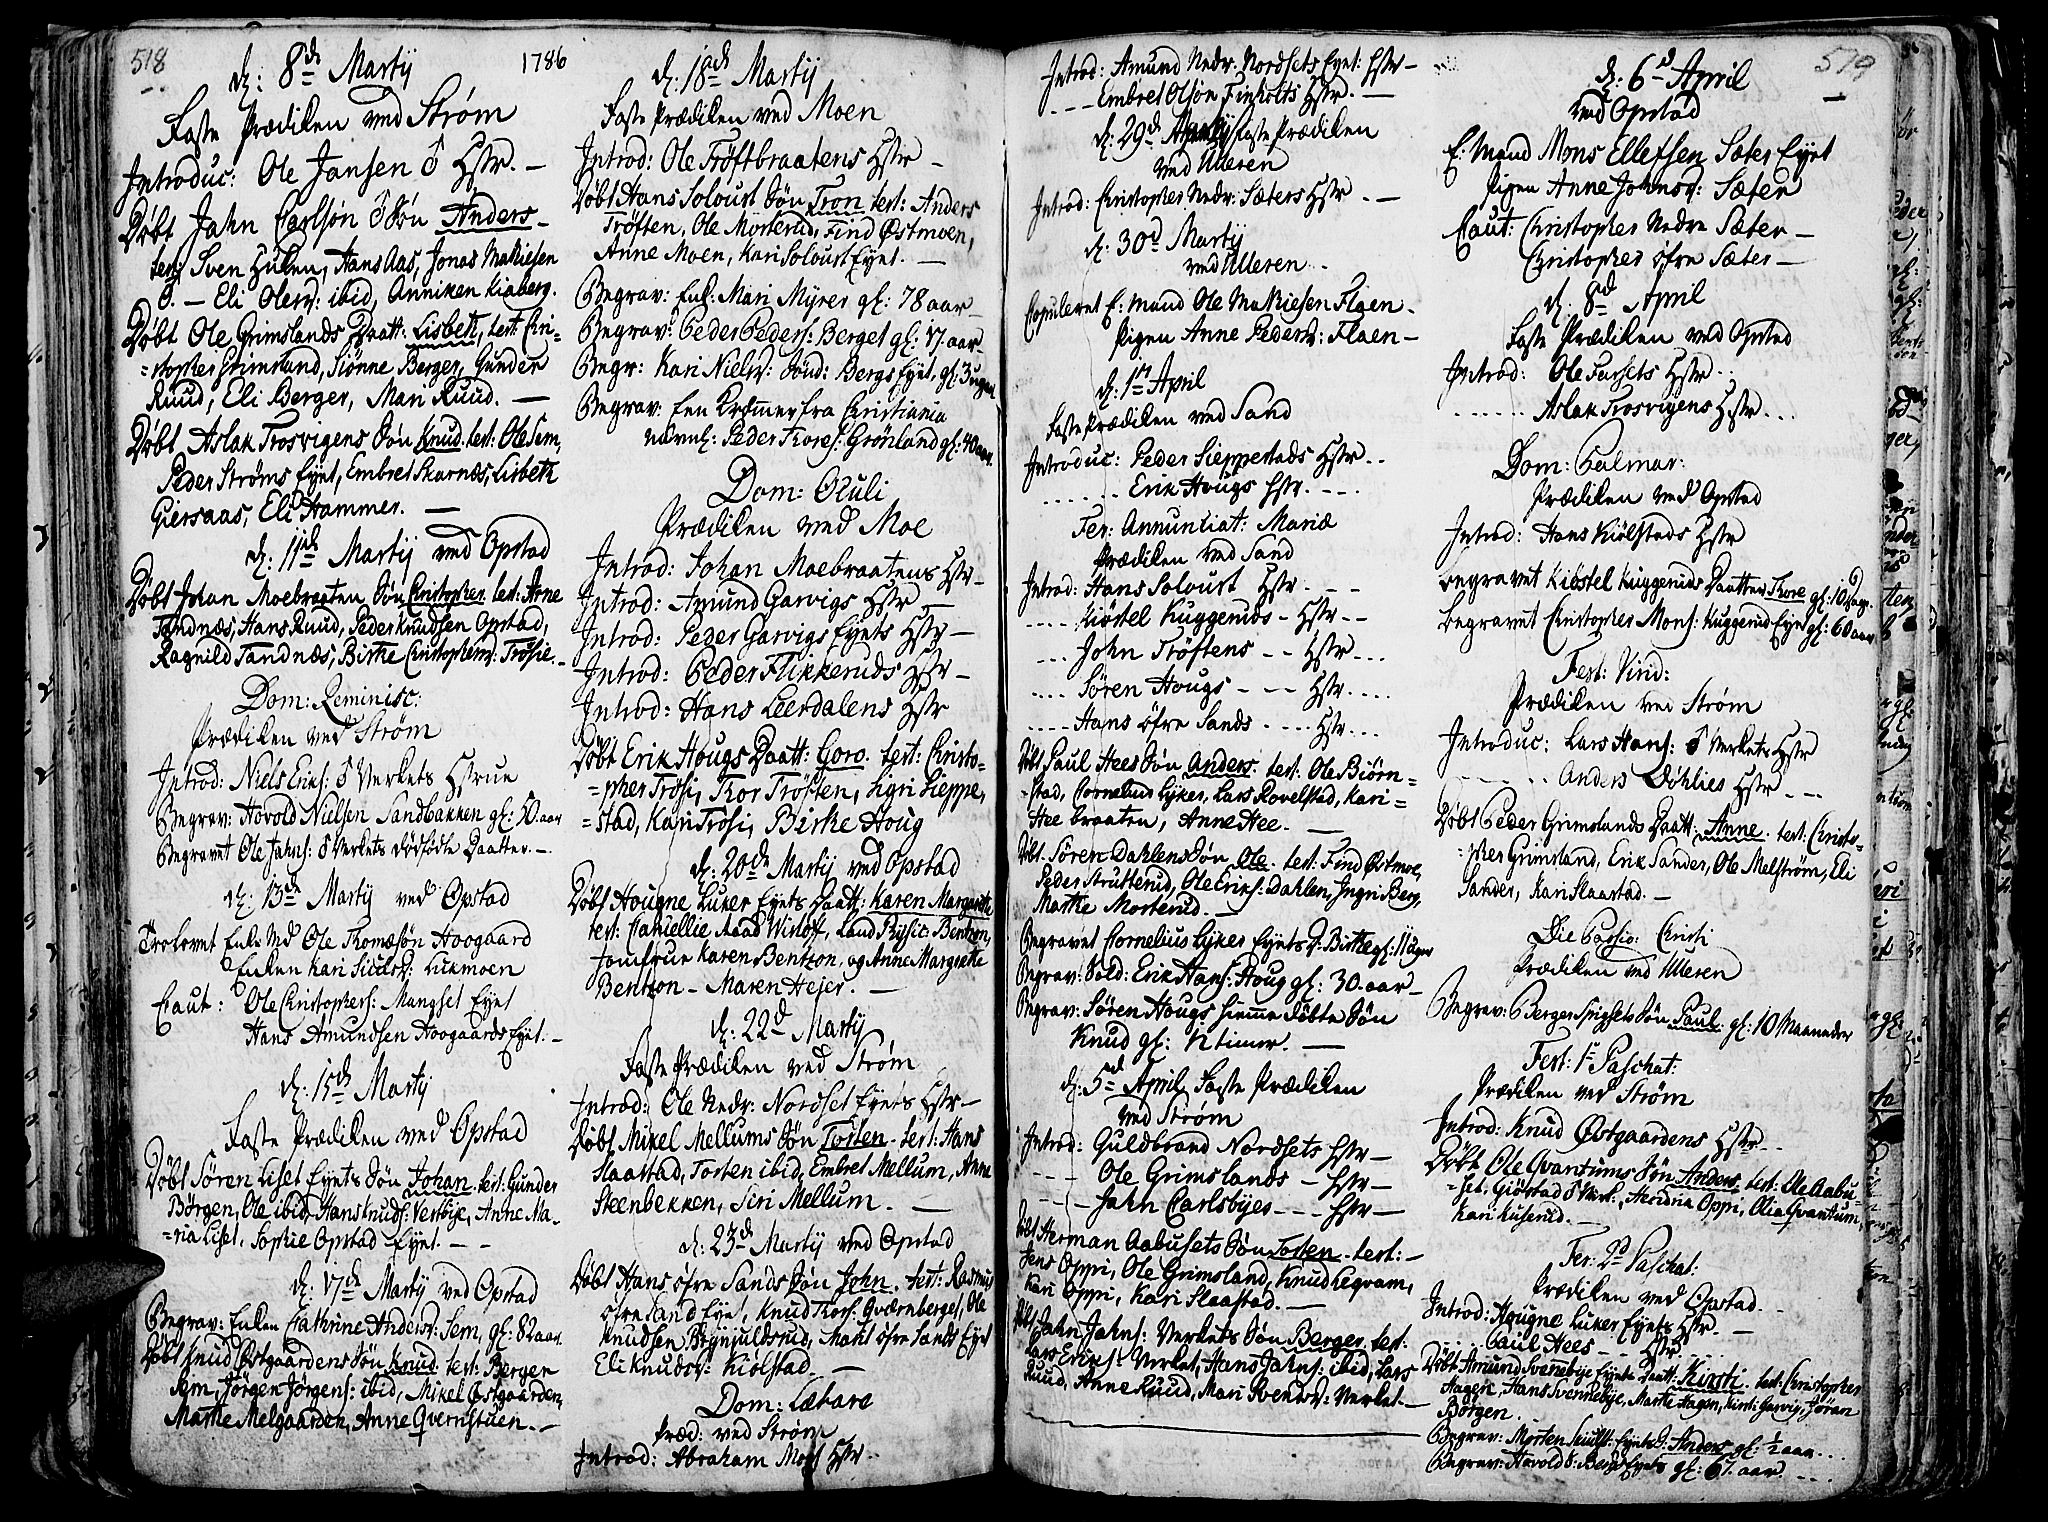 518
1786
d: 8de Martij
Faste Prædiken ved Strøm
Introduc: Ole Jansen Hstr. —
Døbt Jahn Carlsøn Søn Anders —
test: Sven Hulen, Hans Aas, Jonas Mathiesen
— Eli Olesd: ibid, Anniken Kiaberg.
Døbt Ole Grimslands Daatt: Lisbeth, test: Chri-
=stopher Grimsland, Siønne Berger, Gunder
Ruud, Eli Berger, Mari Ruud. —
Døbt Aslak Trosvigens Søn Knud. test: Ole Sem,
Peder Strøms Eyet, Embret Skarnæs, Lisbeth
Giersaas, Eli Hammer. —
d: 11te Martij ved Opstad
Døbt Johan Moebraaten Søn Christopher. test: Arne
Tandnæs, Hans Ruud, Peder Knudsen Opstad,
Ragnild Tandnæs, Birthe Christophersd: Trøsie. —
Dom: Reminisc:
Prædiken ved Strøm
Introd: Niels Erics: Verkets Hstrue
Begrav: Hovold Nielsen Sandbakken gl: 50. aar
Begravet Ole Jahns: Verkets dødfødte Daatter. —
d: 13de Martij ved Opstad
Trolovet Enke Md Ole Thomæsøn Hoogaard
Enken Kari Siulsd: Lukmoen
Caut: Ole Christophers: Mangset Eyet
Hans Amundsen Hoogaards Eyet. —
d: 15de Martij
Faste Prædiken ved Opstad
Døbt Søren Liset Eyets Søn Johan. test: Gunder
Børgen, Ole ibid, Hans Knuds: Verbye, Anne Ma-
=ria Liset, Sophie Opstad Eyet. —
d: 17de Martij ved Opstad
Begrav: Enken Cathrine Andersd: Sem, gl: 82 aar.
Døbt Knud Østgaardens Søn Knud. test: Bergen
Sem, Jørgen Jørgens: ibid, Mikel Østgaarden,
Marthe Melgaarden, Anne Qvernstuen. —
d: 18de Martij
Faste Prædiken ved Moen
Introd: Ole Trøftbraatens Hstr —
Døbt Hans Solourt Søn Tron. test: Anders
Trøften, Ole Morterud, Find Østmoen,
Anne Moen, Kari Solourt Eyet. —
Begrav: Enk: Mari Myrer gl: 78 aar —
Begrav: Peder Peders: Berget gl: 17. aar —
Begr: Kari Nielsd: Sønd: Bergs Eyet, gl: 3 uger
Begrav: Een Kræmer fra Christiania
navnl: Peder Thores: Grønland gl: 40 aar.
Dom: Oculi
Prædiken ved Moe
Introd: Johan Moebraatens Hstr —
Introd: Amund Garvigs Hstr —
Introd: Peder Garvigs Eyets Hstr —
Introd: Peder Flikkeruds Hstr —
Introd: Hans Leerdalens Hstr
Døbt Erik Hougs Daatt: Goro. test: Christo-
=pher Trøsi, Thor Trøften, Sigri Sieppe,
=stad, Kari Trøsi, Birthe Houg
d: 20de Martij ved Opstad
Døbt Hougne Luker Eyets Daatt: Karen Margrethe
test: Wisloff, Land Physic: Bentzon,
Jomfrue Karen Bentzon, og Anne Margrethe
Bentzon — Maren Hejer. —
d: 22d Martij
Faste Prædiken ved Strøm
Introd: Ole Nedr: Nordset Eyets Hstr —
Døbt Mikel Mellums Søn Torsten. test: Hans
Slaastad, Torsten ibid, Embret Mellum, Anne
Steenbekken, Siri Mellum. —
d: 23de Martij ved Opstad
Døbt Hans øfre Sands Søn John. test: Rasmus
øfre Sand Eyet, Knud Thors: Qværnberget, Ole
Knudsen Brynjuldsrud, Maht øfre Sands Eyet
Eli Knudsd: Kiølstad. —
Dom: Lætare
Præd: ved Strøm
Introd: Abraham Moss Hstr.
519
Introd: Amund Nedr: Nordsets Eyet: Hstr —
- - - Embret Olsøn Finholts Hstr. —
d: 29de Martij Faste Prædiken
ved Ulleren
Introd: Christopher Nedr: Sæters Hstr. —
d: 30d Martij
ved Ulleren.
Copuleret E: Mand Ole Mathiesen Flaen —
Pigen Anne Pedersd: Flaen —
d: 1st April
Faste Prædiken ved Sand
Introduc: Peder Sieppestads Hstr. .
. . . . . . Erik Hougs Hstr. - - -
Fer: Annuntiat: Mariæ
Prædiken ved Sand
Introd: Hans Solourt Hstr. - - -
. . . . Kiøstel Kuggeruds — Hstr. —
. . . John Trøftens - - Hstr. . .
. . . . Søren Hougs - - - Hstr. . . .
. . . . Hans øfre Sands . . . . Hstr. . .
Døbt Paul Hees Søn Anders. test: Ole Biørn-
=stad, Cornelius Lyker, Lars Rovelstad, Kari-
Hee braaten, Anne Hee. —
Døbt Søren Dahlens Søn Ole. test: Find Østmoe,
Peder Strutterud, Ole Eriks: Dahlen, Ingri Berg,
Marthe Morterud. —
Begravet Cornelius Lyker Eyets D: Birthe gl: 11 uger
Begrav: Sold: Erik Hans: Houg gl: 30. aar —
Begrav: Søren Hougs hiemme døbte Søn
Knud gl: timer. —
d: 5d April, Faste Prædiken
ved Strøm
Introd: Guldbrand Nordsets Hstr —
- - - Ole Grimslands - Hstr —
- - - Jahn Carlsbyes - - - Hstr —
Døbt Herman Aabusets Søn Torsten. test: —
Jens Oppi, Ole Grimsland, Knud Legram,
Kari Oppi, Kari Slaastad. —
Døbt Jahn Jahns: Verkets Søn Berger. test:
Lars Eriks: Verket, Hans Jahns: ibid, Lars
Ruud, Anne Ruud, Mari Svendsd: Verket. —
d: 6d April
ved Opstad
E: Mand Mons Ellefsen Sæter Eyet
Pigen Anne Johnsd: Sæter
Caut: Christopher Nedre Sæter —
Christopher øfre Sæter —
d: 8d April
Faste Prædiken ved Opstad
Introd: Ole Fursets Hstr. .
. . . . . . Aslak Trosvigens Hstr. . .
Dom: Palmar:
Prædiken ved Opstad
Introd: Hans Kiølstads Hstr
Begravet Kiøstel Kuggeruds Daatter Thore gl: 10 dage.
Begravet Christopher Mons: Kuggerud Eyet gl: 60 aar
Fest: Virid:
Prædiken ved Strøm
Introduc: Lars Hans: Verkets Hstr
- - - - - Anders Døhlies Hstr - - -
Døbt Peder Grimslands Daatt: Anne. test: Christo-
=pher Grimsland, Erik Sander, Ole Melstrøm, Eli
Sander, Kari Slaastad. —
Die Passio: Christi
Prædiken ved Ulleren
Begrav: Berger Spigsets Søn Paul. gl: 10 Maaneder
Fest: 1st Paschat:
Prædiken ved Strøm
Introd: Knud Østgaardens Hstr. —
Døbt Ole Qvantums Søn Anders. test: Ole Aabu-
=set, Giørstad Verk:, Hendrica Oppi, Olia Qvantum,
Kari Kuserud. —
Fer: 2d Paschat:
Prædiken ved Opstad. —
Introd: Hougne Luker Eyets Hstr. —
. . . . Paul Hees - - - Hstr. . . .
Døbt Amund Svennebye Eyets Daatt: Kirsti. test: Christopher
Hagen, Hans Svennebye, Marthe Hagen, Kirsti Garvig, Jøran
Børgen.
Begrav: Morten Skulst: Eyets D: Anders gl: ½ aar. . .
Begrav: Havold S: Bergs Eyets gl: 67. aar. - - -